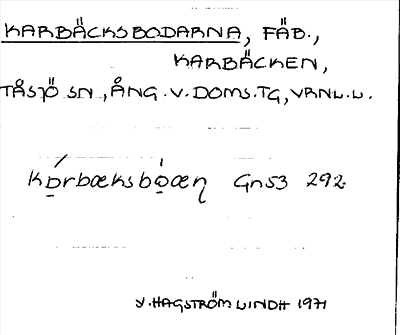 KARBÄCKSBODARNA, FÄB.,
KARBÄCKEN,
TÅSJÖ SN, ÅNG. V. DOMS. TG, VRNL. L.
kɒ́rbæksbo̱̍æɳ Gn53 292
V. HAGSTRÖM LINDH 1971